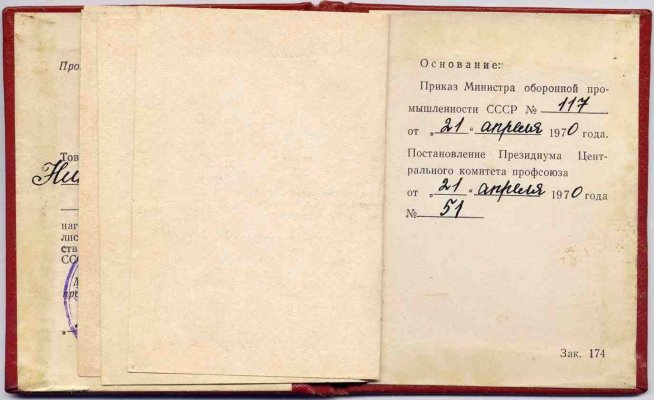 Про
Тов
Ни
наг
лис
ства
ССС
Основание:
Приказ Министра оборонной про-
мышленности СССР № 117
от „21“ апреля 1970 года.
Постановление Президиума Цент-
рального комитета профсоюза
от „21“ апреля 1970 года
№ 51
Зак. 174